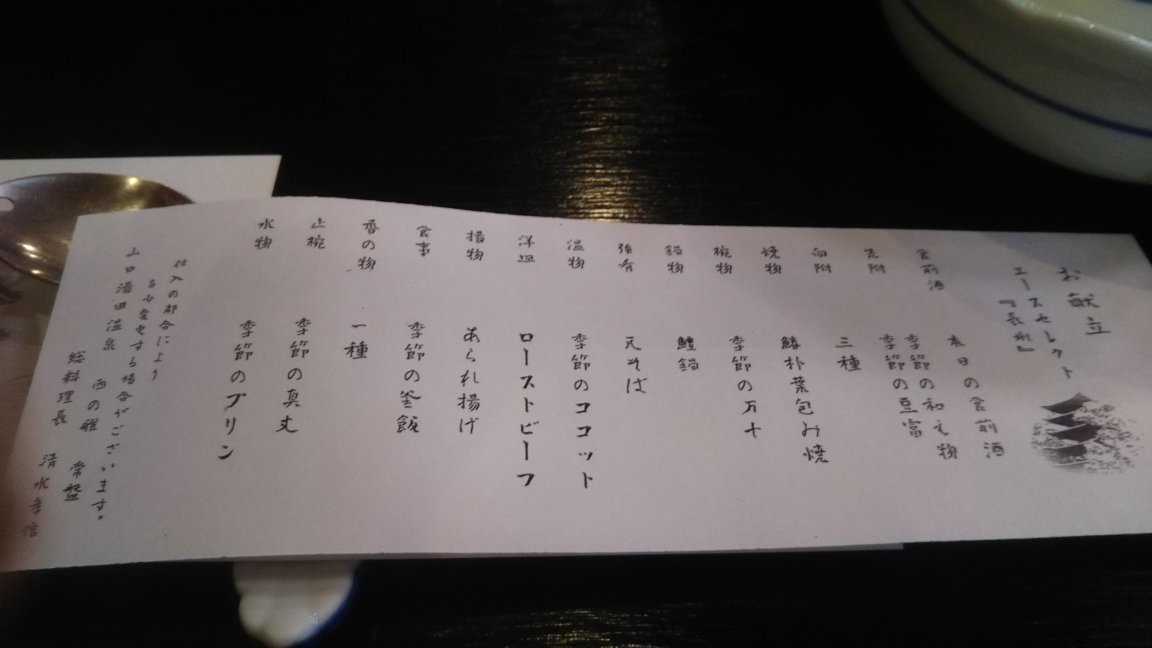 お献立
エースセレクト
『長州』
食前酒 本日の食前酒
先附 季節の和え物
季節の豆富
向附 三種
焼物 鱗朴葉包み焼
椀物 季節の万十
鍋物 鱧鍋
強肴 瓦そば
温物 季節のココット
洋皿 ローストビーフ
揚物 あられ揚げ
食事 季節の釜飯
香の物 一種
止椀 季節の真丈
水物 季節のプリン
仕入の都合により
多少変更する場合がございます。
山口湯田温泉 西の雅 常盤
総料理長 清水孝信